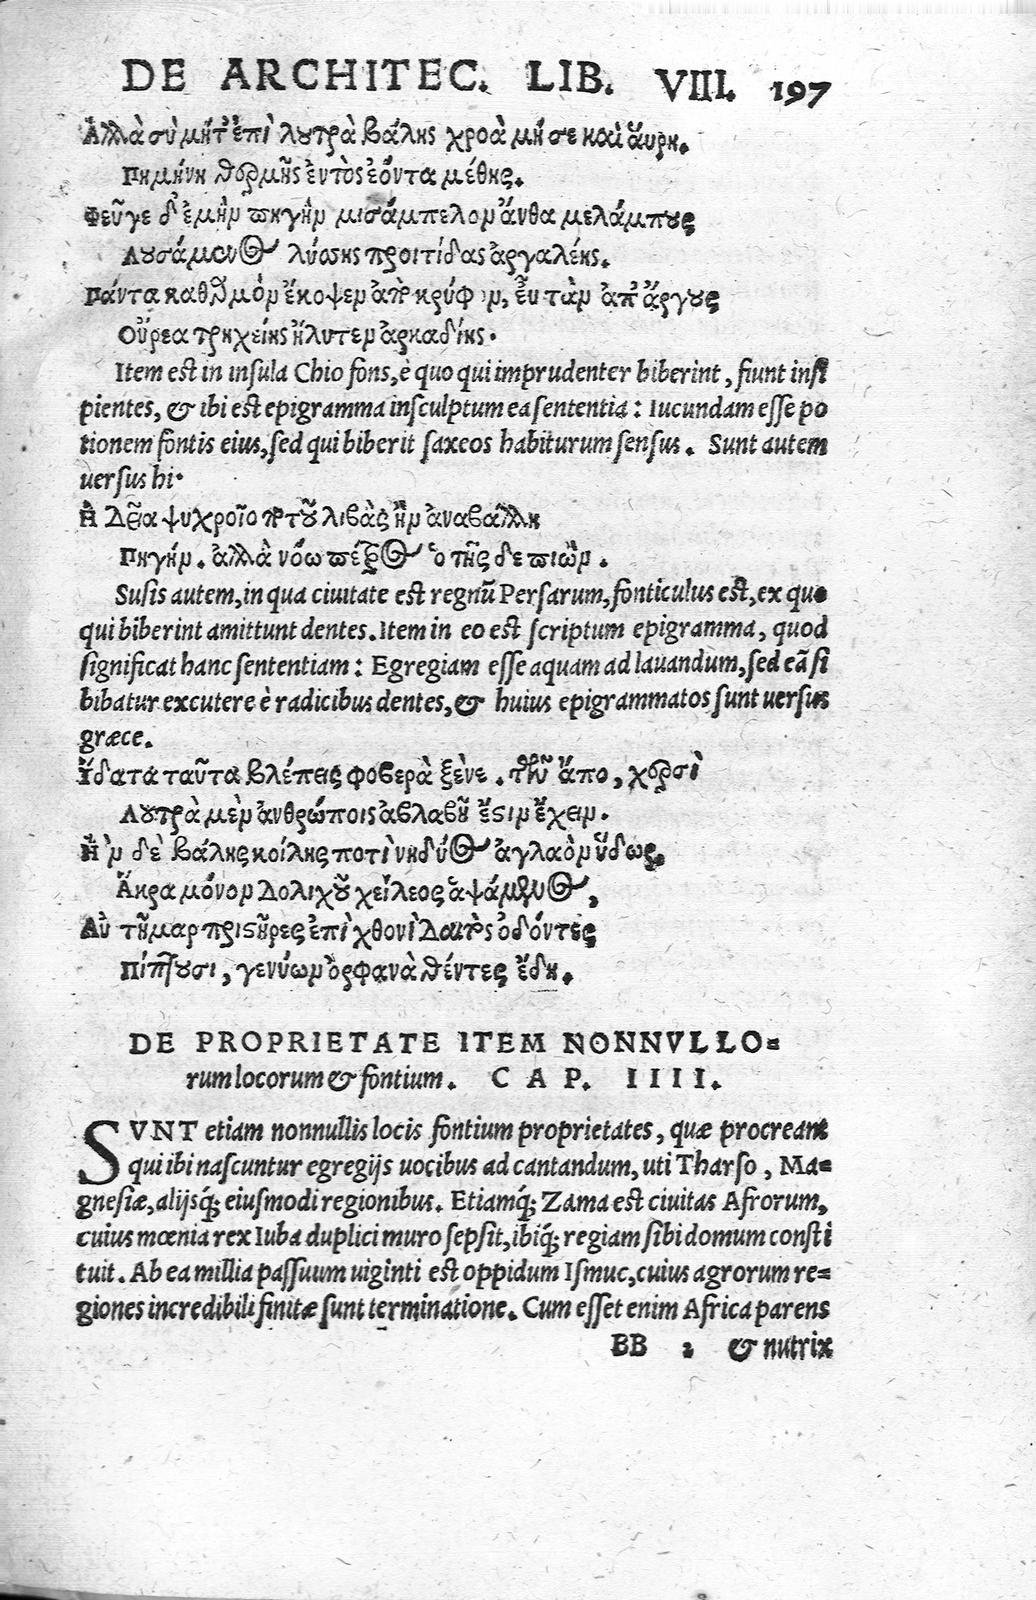 DE ARCHITEC. LIB. VIII. 197
Ἀλλὰ σὺ μήτ' ἐπὶ λουτρὰ βάλῃς χροὰ μή σε καὶ αὔρη.
Πημήνῃ θερμῆς ἐντὸς ἐόντα μέθης.
Φεῦγε δ' ἐμὴν πηγὴν μισάμπελον ἄνθα μελάμπους
Λουσάμενος λύσσης προιτίδας ἀργαλέης.
Πάντα καθαρμὸν ἔκοψεν ἀπόκρυφον, εὖ τὰν ἀπ' ἄργους
Οὔρεα τρηχείης ἤλυτεν ἀρκαδίης.
Item est in insula Chio fons, è quo qui imprudenter biberint, fiunt insi
pientes, & ibi est epigramma insculptum ea sententia: Iucundam esse po
tionem fontis eius, sed qui biberit saxeos habiturum sensus. Sunt autem
uersus hi.
ψυχροῖο ποτοῦ λιβὰς ἣν ἀναβάλλῃ
Πηγήν. ἀλλὰ νόῳ πέτρος ὁ τῆς δε πιών.
Susis autem, in qua ciuitate est regnū Persarum, fonticulus est, ex quo
qui biberint amittunt dentes. Item in eo est scriptum epigramma, quod
significat hanc sententiam: Egregiam esse aquam ad lauandum, sed eā si
bibatur excutere è radicibus dentes, & huius epigrammatos sunt uersus
græce.
Ὕδατα ταῦτα βλέπεις φοβερὰ ξένε. τῶν ἄπο, χερσὶ
Λουτρὰ μὲν ἀνθρώποις ἀβλαβῆ ἔστιν ἔχειν.
Ἢν δὲ βάλῃς κοίλης ποτὶ νηδύος ἀγλαὸν ὕδωρ,
Ἄκρα μόνον δολιχοῦ χείλεος ἁψάμενος,
Αὐτῆμαρ πριστῆρες ἐπὶ χθονὶ δαιτὸς ὀδόντες
Πίπτουσι, γενύων ὀρφανὰ θέντες ἕδη.
DE PROPRIETATE ITEM NONNVLLO-
rum locorum & fontium. CAP. IIII.
SVNT etiam nonnullis locis fontium proprietates, quæ procreant
qui ibi nascuntur egregijs uocibus ad cantandum, uti Tharso, Ma-
gnesiæ, alijsq́; eiusmodi regionibus. Etiamq́; Zama est ciuitas Afrorum,
cuius mœnia rex Iuba duplici muro sepsit, ibiq́; regiam sibi domum consti
tuit. Ab ea millia passuum uiginti est oppidum Ismuc, cuius agrorum re-
giones incredibili finitæ sunt terminatione. Cum esset enim Africa parens
BB 2 & nutrix